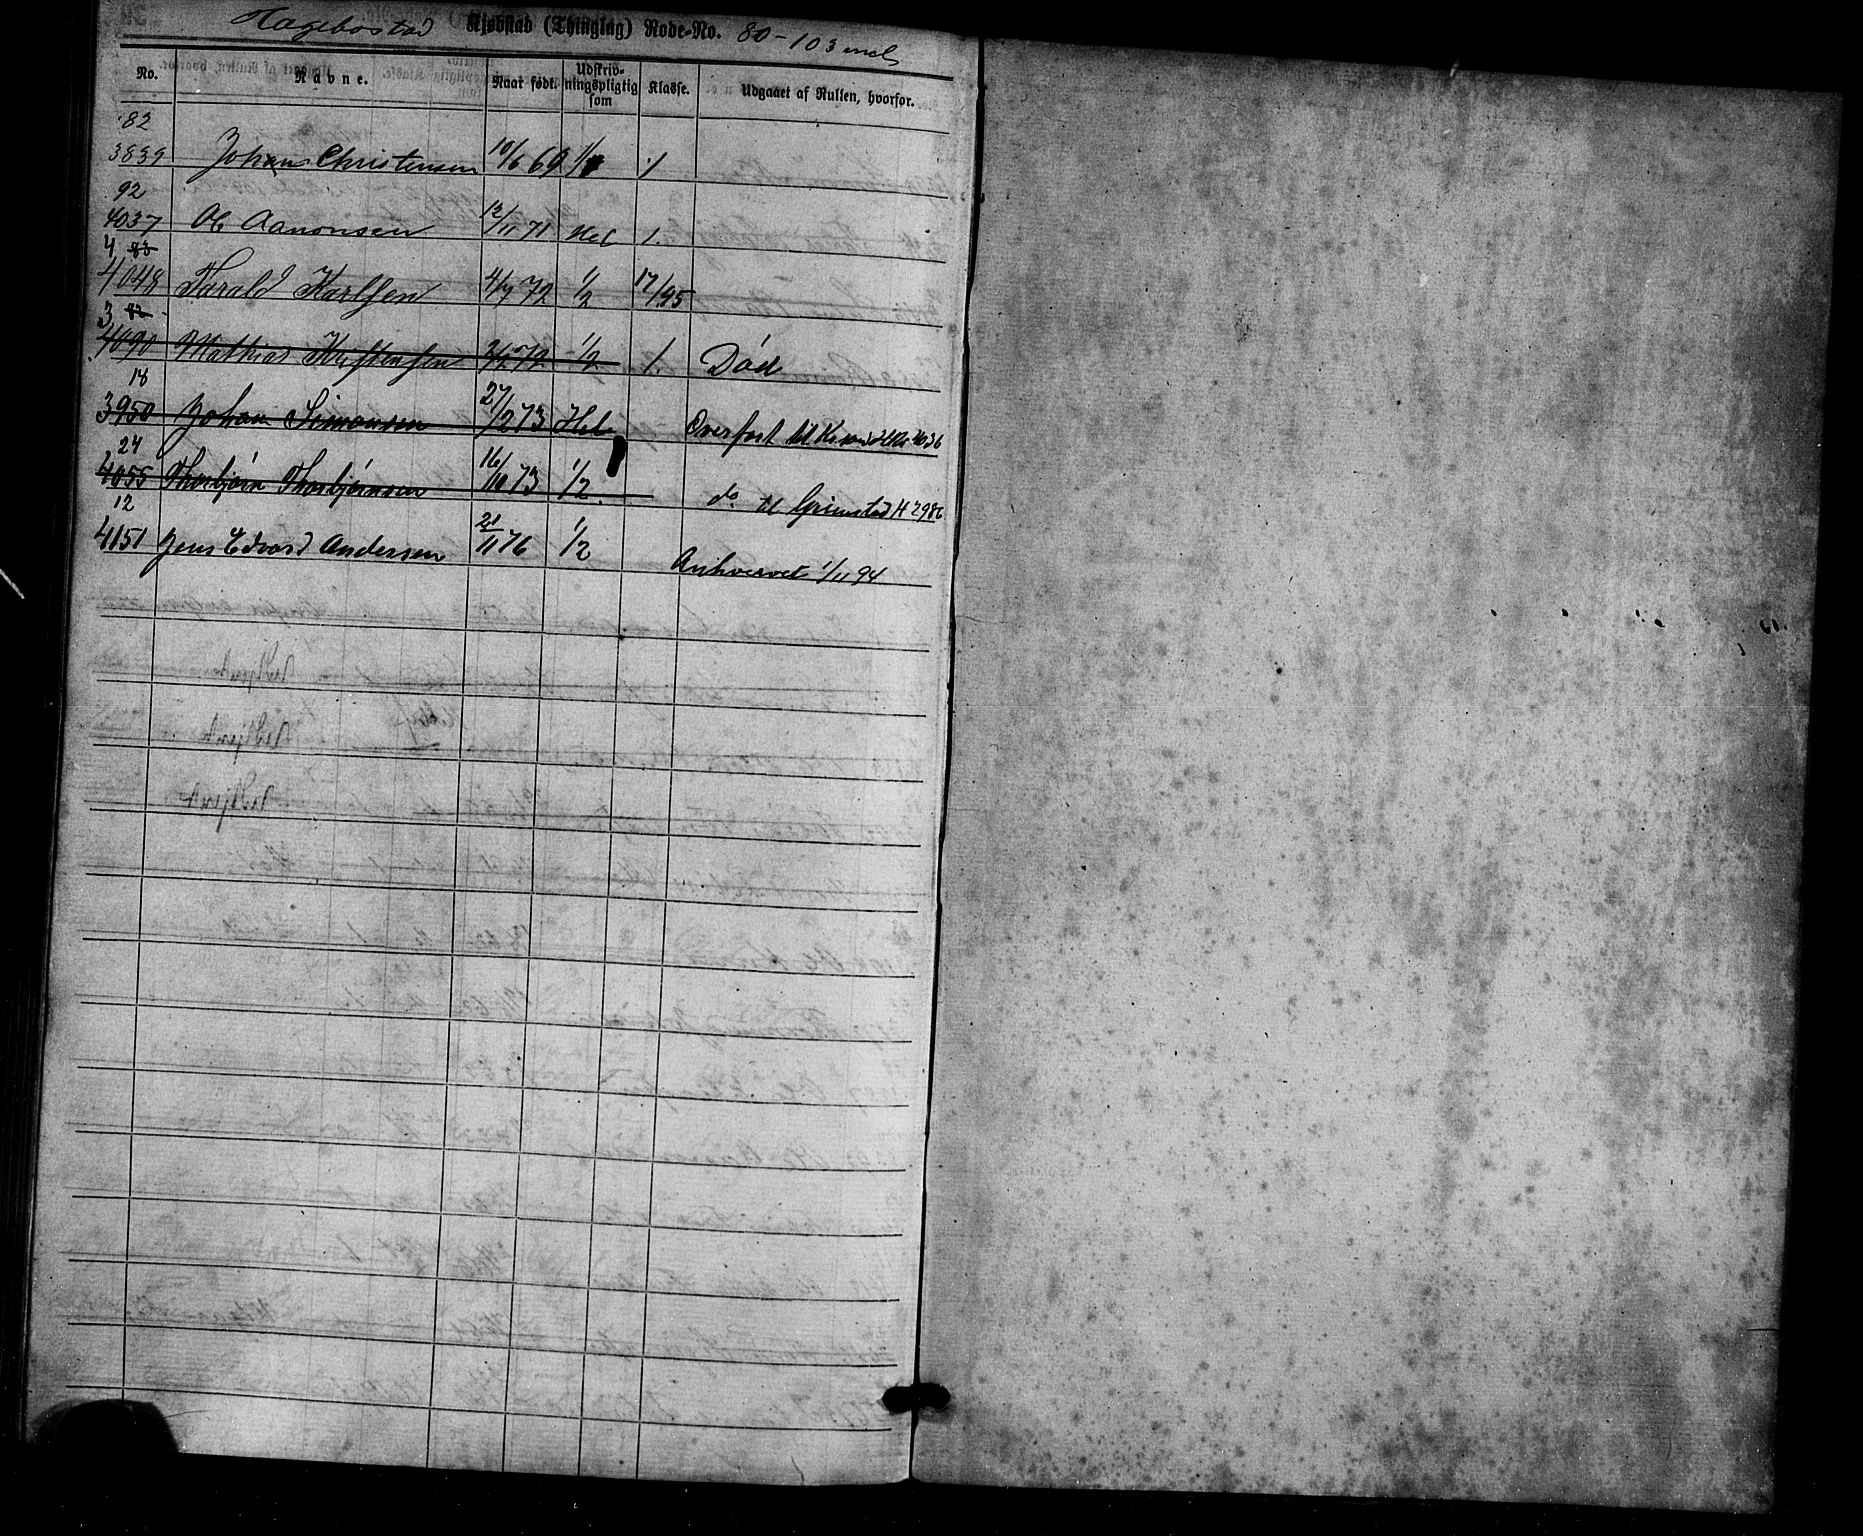 Hagebostad Kjøbstad (Thinglag) Rode-No. 80 - 103 incl
No. Navne. Naar født. Udskrivningspligtig som Klasse. Udgaaet af Rullen, hvorfor.
82
3839 Johan Christensen 10/6 69 1/1 1
92
4037 Ole Aanonsen 12/11 71 Hel 1.
4
4048 Tarald Karlsen 4/7 72 1/2 17/95
3
4090 Mathias Kristensen 72 1/2 1. Død
18
3950 Johan Simonsen 27/2 73 Hel Overført til
24
4055 Thorbjørn Thorbjørnsen 16/10 73 1/2. do. til Grimstad H 2986
12
4151 Jens Edvard Andersen 21/11 76 1/2 Anhvervet 1/11 94